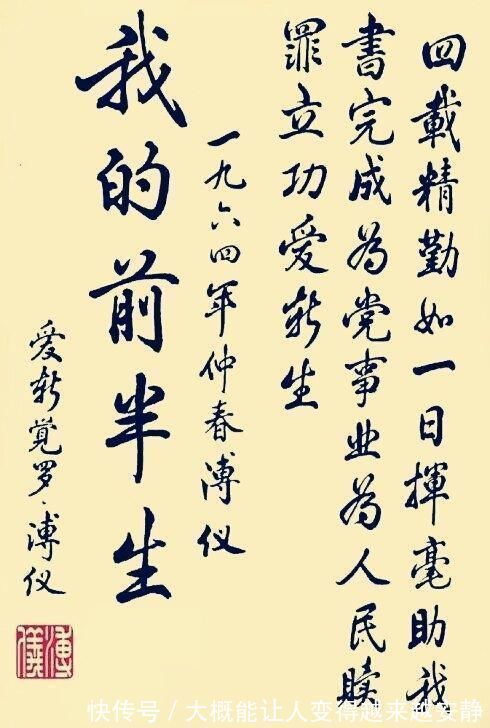 四載精勤如一日揮毫助我
書完成為党事业為人民贖
罪立功爱新生
一九六四年仲春溥仪
我的前半生
爱新覚罗·溥仪
溥儀
快传号／大概能让人变得越来越安静